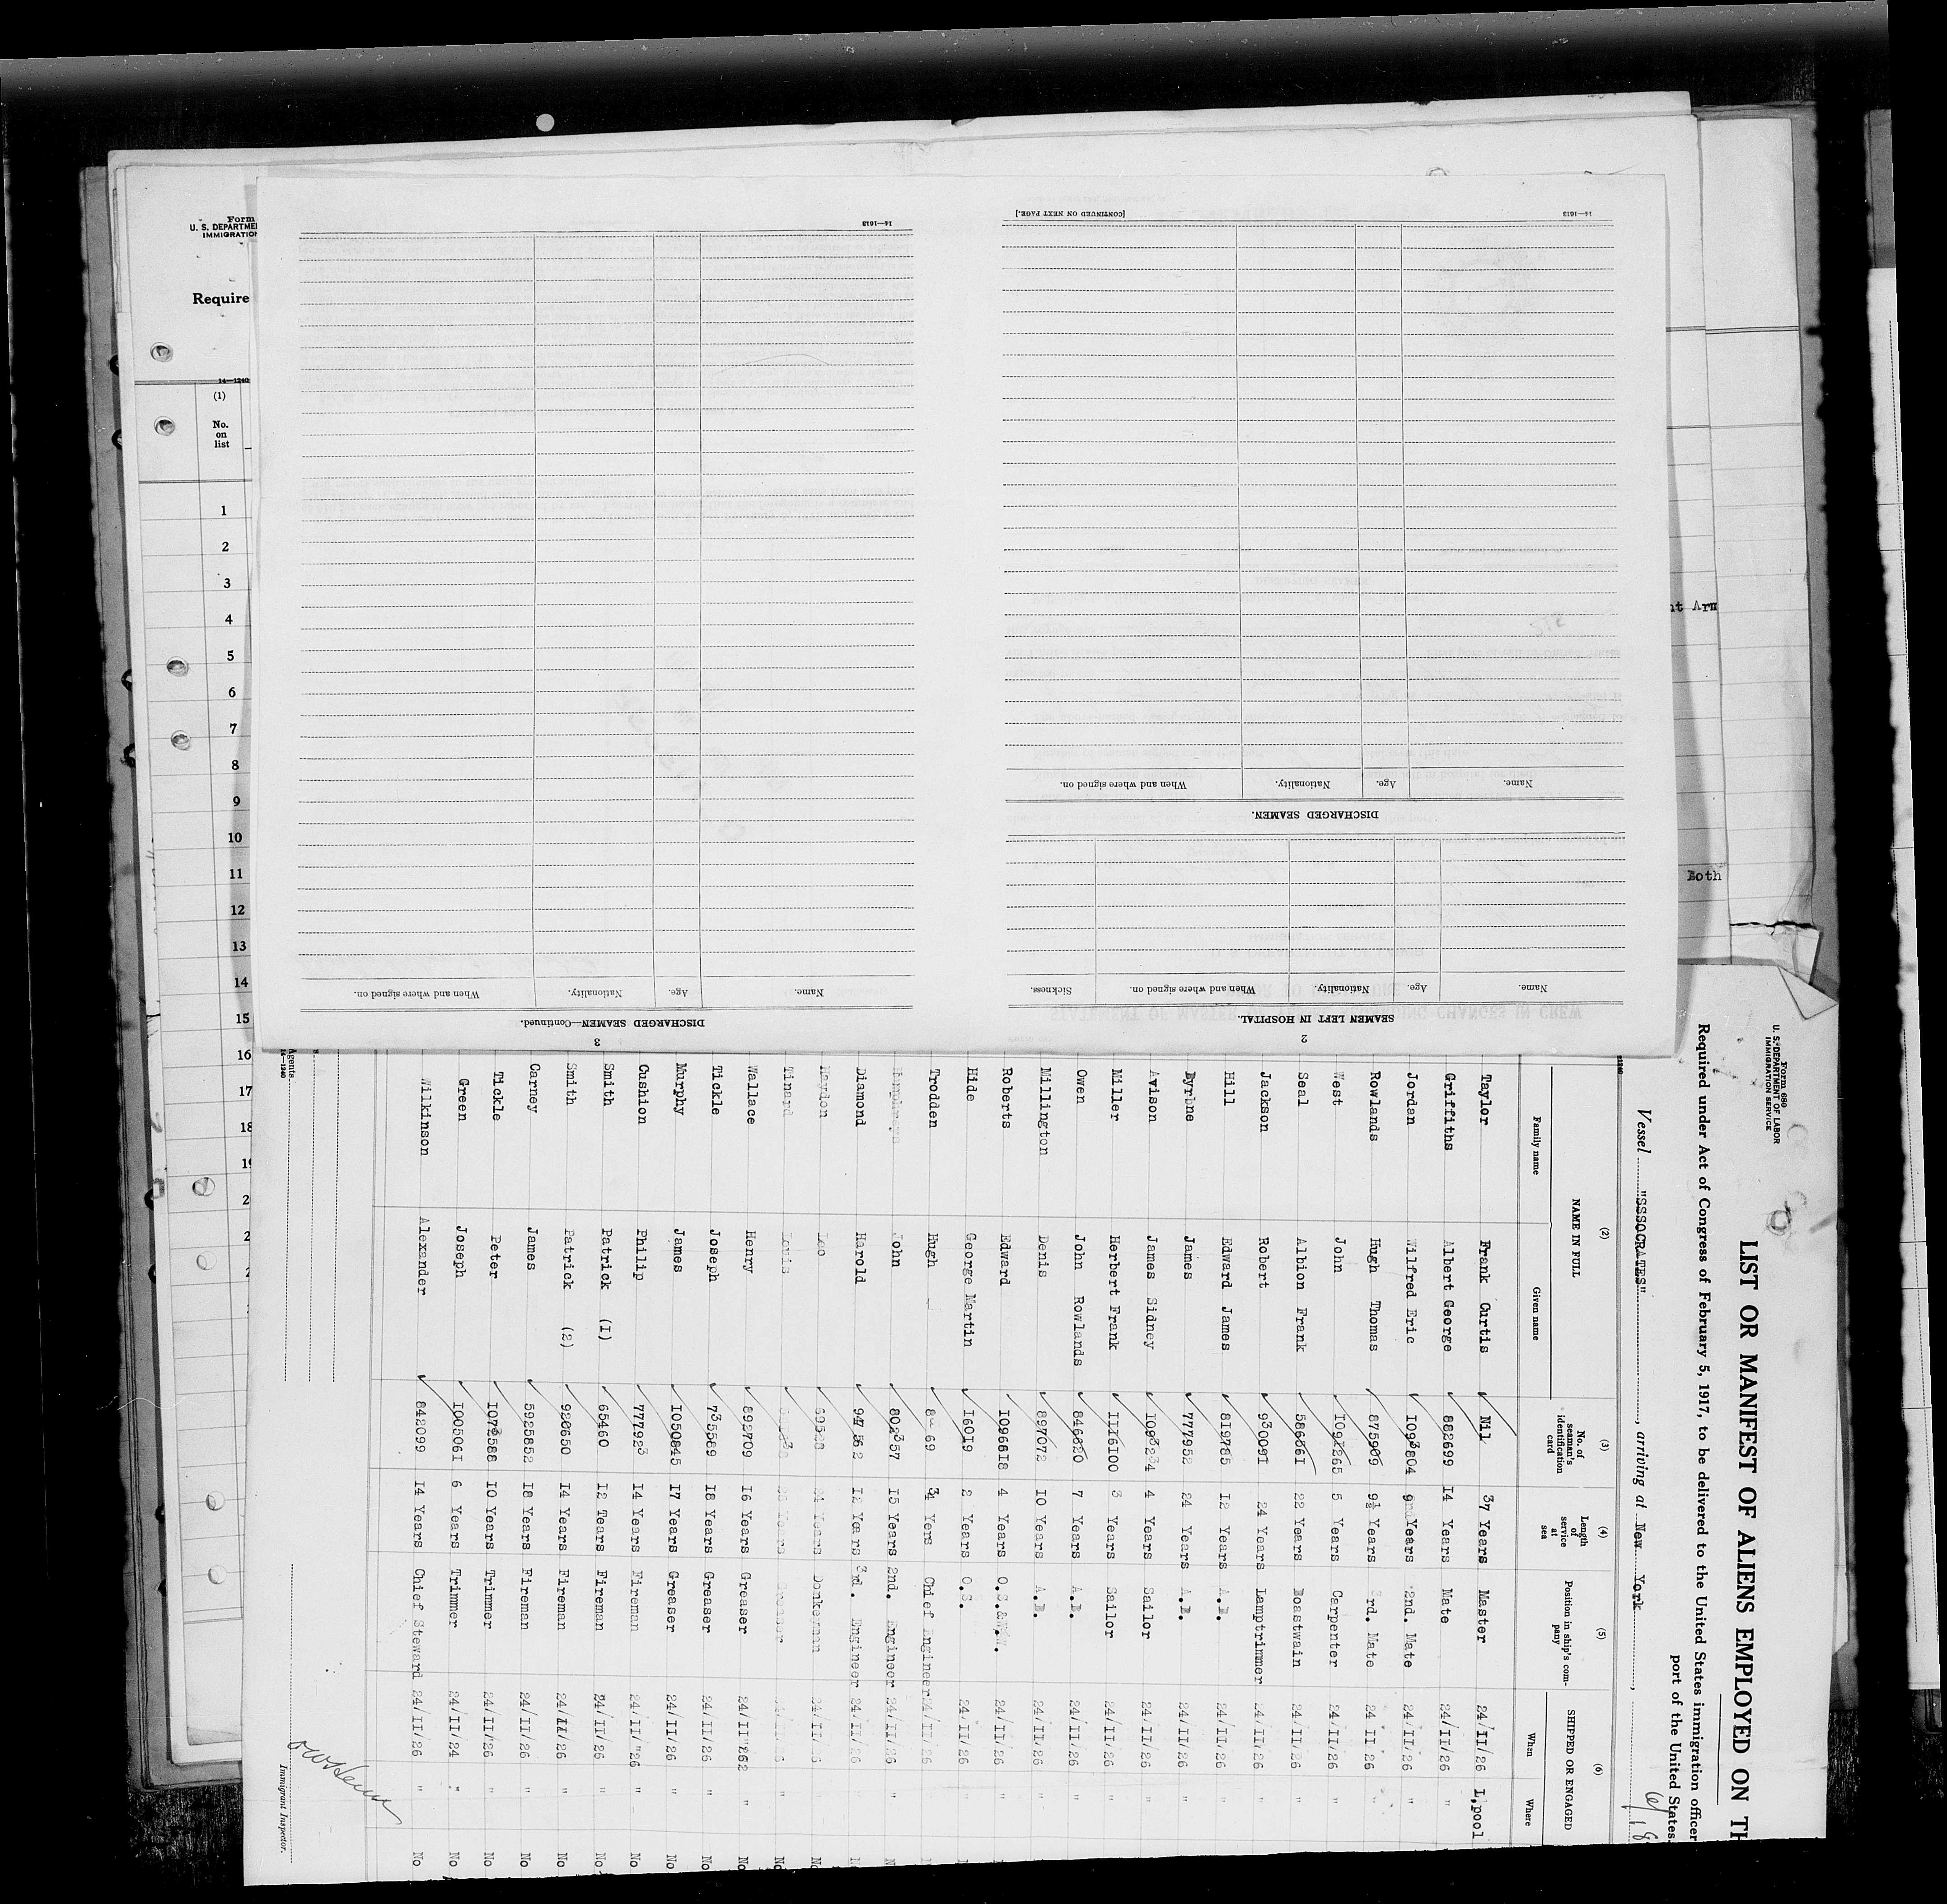 Form
U. S. DEPARTME
IMMIGRATION
Require
14—1240
(1)
No.
on
list
1
2
3
4
5
6
7
8
9
10
11
12
13
14
15
16
17
18
19
2
2
2
nt Arm
Both
2
SEAMEN LEFT IN HOSPITAL.
Name. Age. Nationality. When and where signed on. Sickness.
DISCHARGED SEAMEN.
Name. Age. Nationality. When and where signed on.
14—1613 [CONTINUED ON NEXT PAGE.]
3
DISCHARGED SEAMEN—Continued.
Name. Age. Nationality. When and where signed on.
14—1613
Form 680
U. S. DEPARTMENT OF LABOR
IMMIGRATION SERVICE
LIST OR MANIFEST OF ALIENS EMPLOYED ON TH
Required under Act of Congress of February 5, 1917, to be delivered to the United States immigration officer
port of the United States.
Vessel "SSSOCRATES", arriving at New York,
(2) (3) (4) (5) (6)
NAME IN FULL No. of seaman's identification card Length of service at sea Position in ship's company SHIPPED OR ENGAGED
Family name Given name When Where
Taylor Frank Curtis Nil 37 Years Master 24/II/26 L,pool
Griffiths Albert George 882699 14 Years Mate 24/II/26 "
Jordan Wilfred Eric 1093804 Years 2nd. Mate 24/II/26 "
Rowlands Hugh Thomas 875909 9½ Years 3rd. Mate 24 II 26 "
West John 1091265 5 Years Carpenter 24/II/26 "
Seal Albion Frank 586661 22 Years Boastwain 24/II/26 "
Jackson Robert 930091 24 Years Lamptrimmer 24 II/26 "
Hill Edward James 819785 12 Years A.B. 24/II/26 "
Byrbne James 777952 24 Years A.B. 24/II/26 "
Avison James Sidney 4 Years Sailor 24 II/26 "
Miller Herbert Frank 1116100 3 Years Sailor 24/II/26 "
Owen John Rowlands 846620 7 Years A.B. 24/II/26 "
Millington Denis 897072 10 Years A.B. 24/II/26 "
Roberts Edward 1096618 4 Years 24/II/26 "
Hide George Martin 16019 2 Years O.S. 24 II/26 "
Trodden Hugh Yers Chief Engineer 24/II/26
John 802357 15 Years 2nd. Engineer 24/II/26 "
Diamond Harold 12 Years 3rd. Engineer 24/II/26
Haydon Leo Years Donkeyman
Tinard Louis Years Greaser "
Wallace Henry 892709 16 Years Greaser 24/II"262 "
Tickle Joseph 735589 18 Years Greaser 24/II/26 "
Murphy James 1050845 17 Years Greaser 24/II/26 "
Cushion Philip 777923 14 Years Fireman 24/II/"26 "
Smith Patrick (I) 65460 12 Tears Fireman 24/II/26 "
Smith Patrick (2) 920650 14 Years Fireman 24/II/26 "
Carney James 5925852 18 Years Fireman 24/II/26 "
Tickle Peter 10 Years Trimmer 24/II/26 "
Green Joseph 1005061 6 Years Trimmer 24/II/24 "
Wilkinson Alexander 842099 14 Years Chief Steward 24/II/26 "
No
No
No
No
No
No
No
No
No
No
Agents
14—1240
Immigrant Inspector.